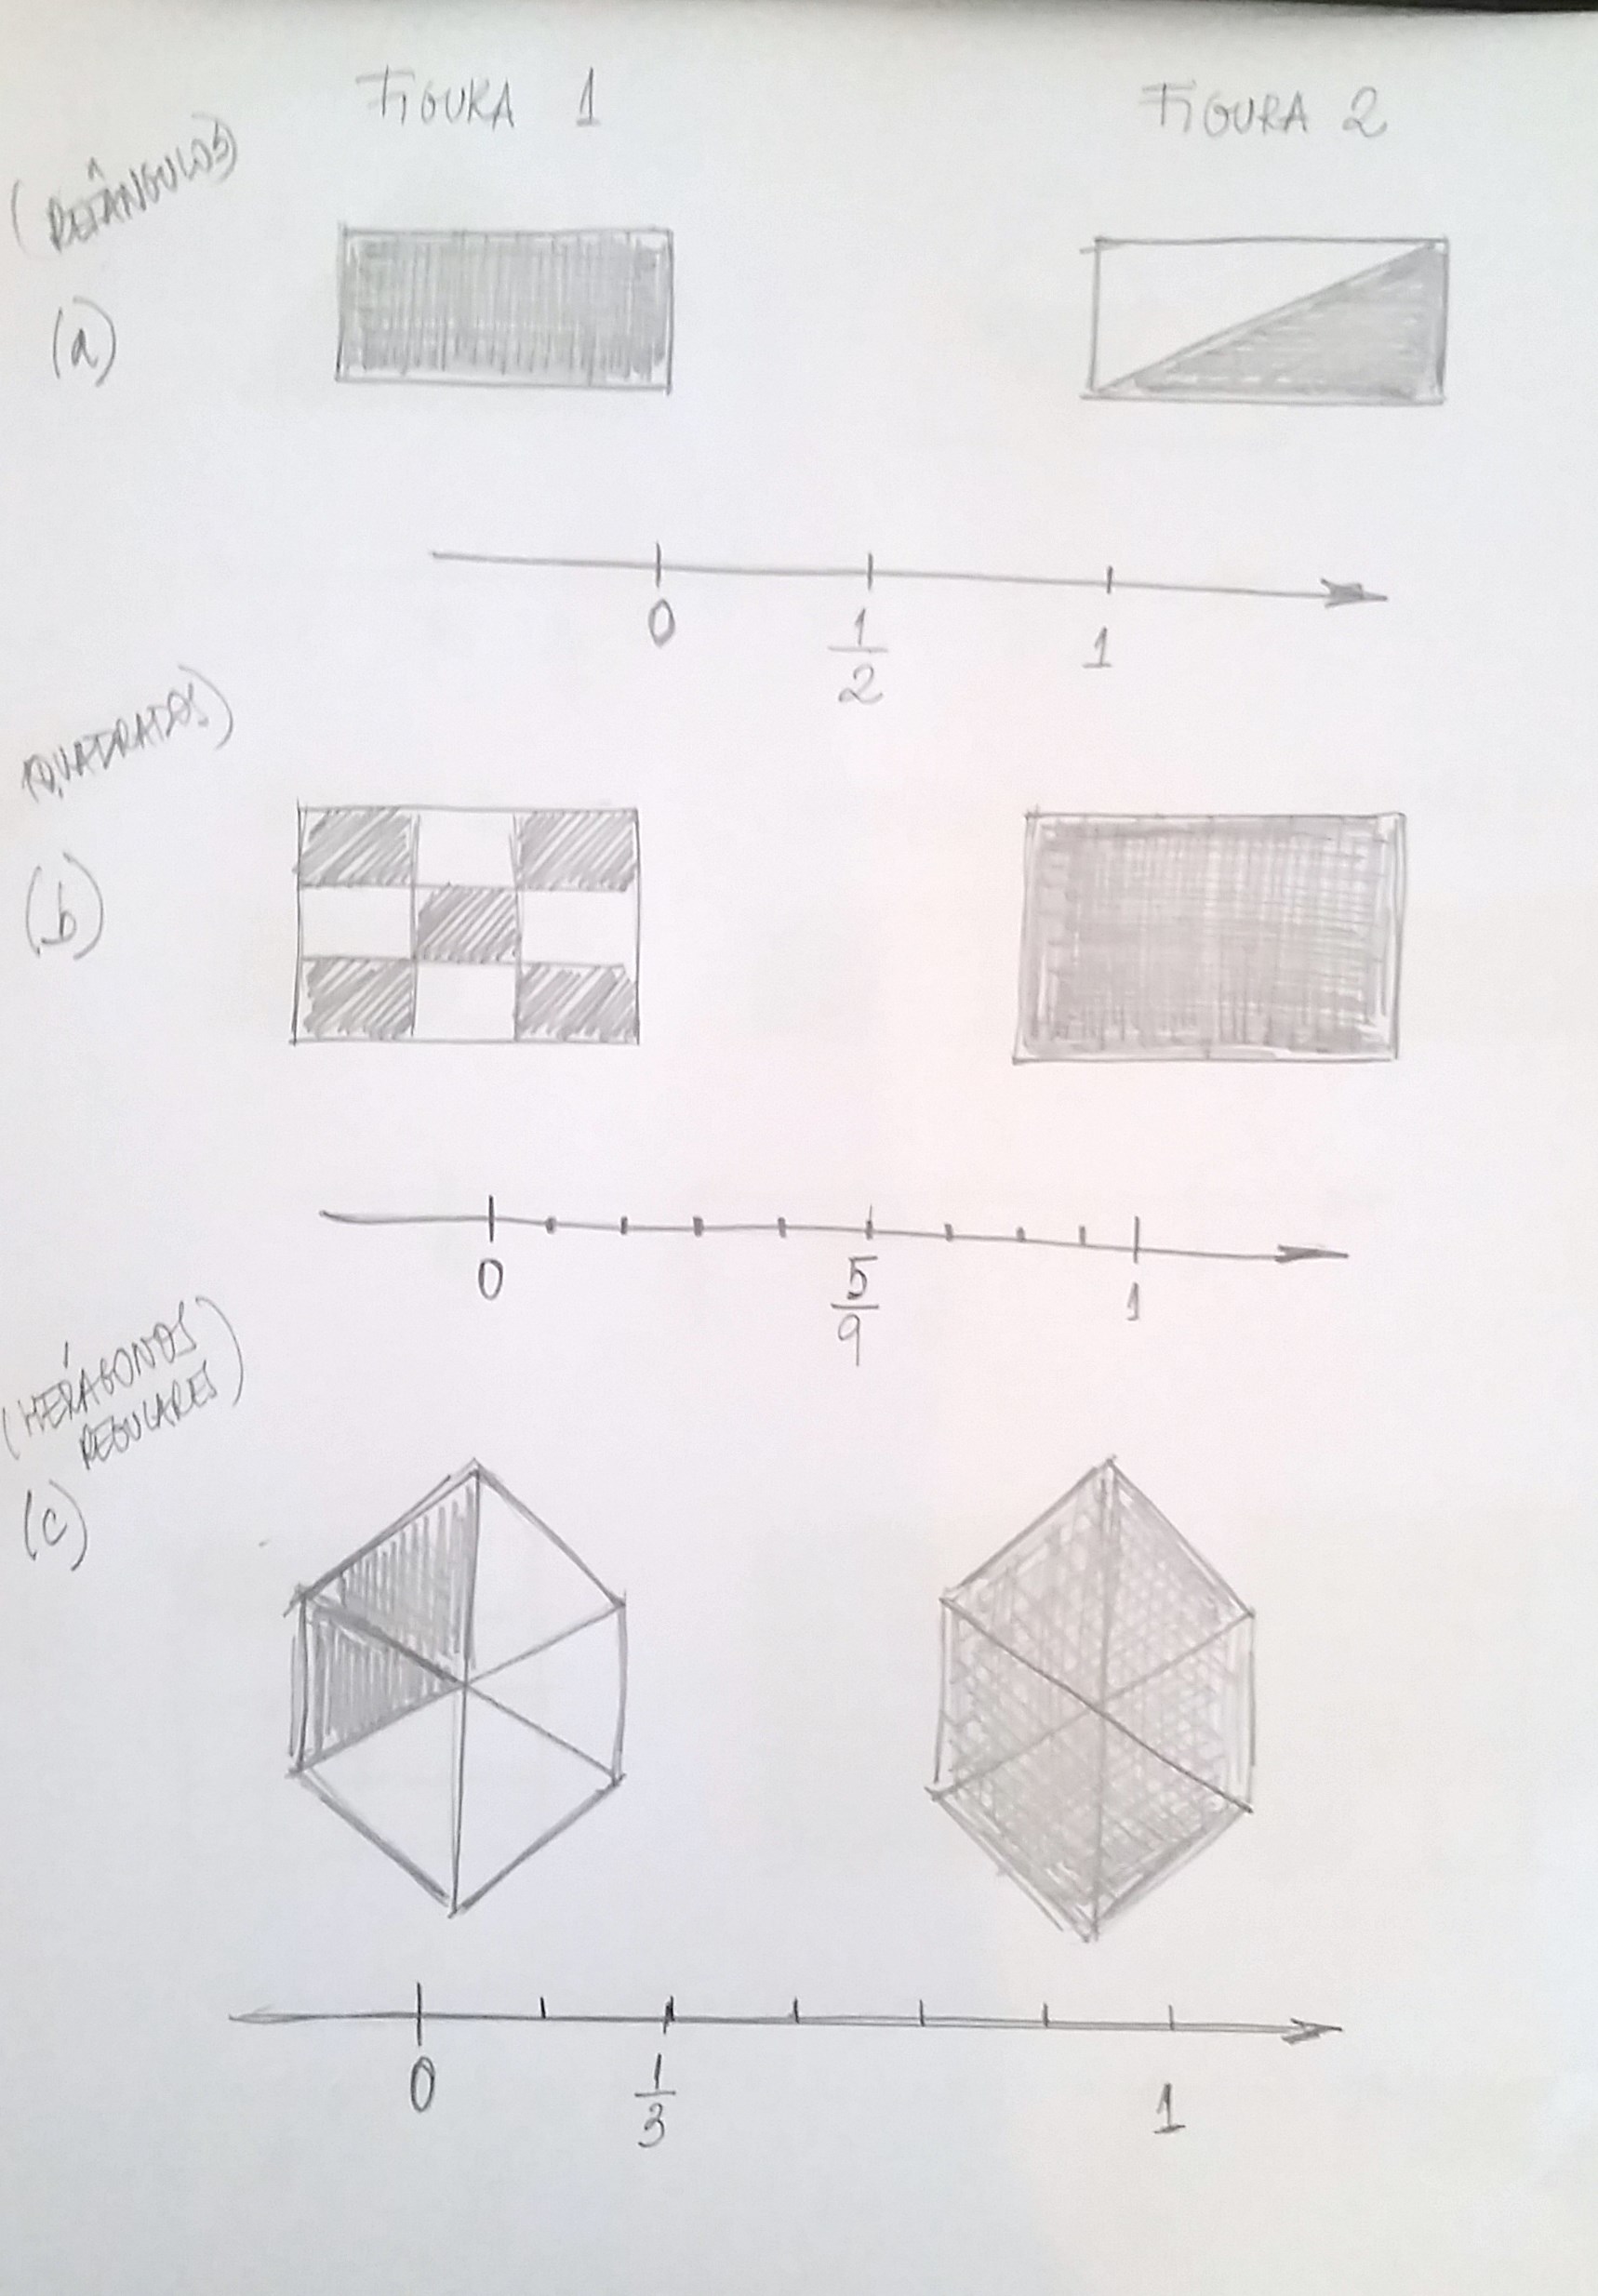 FIGURA 1
FIGURA 2
(RETÂNGULOS)
(a)
0
1
2
1
(QUADRADOS)
(b)
0
5
9
1
(HEXÁGONOS
REGULARES)
(c)
0
1
3
1